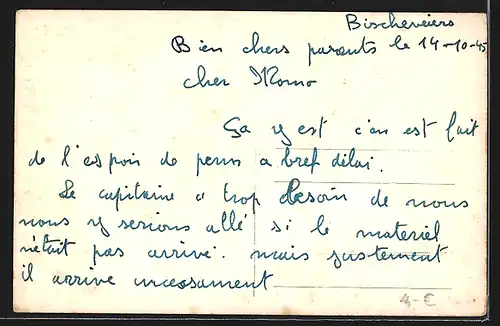 Bischeveiers
Bien chers parents le 14-10-45
cher Momo
Ça y est c'en est fait
de l'espoir de perm a bref délai.
Le capitaine a trop besoin de nous
nous y serions allé si le materiel
n'était pas arrivé. mais justement
il arrive incessament
4,- €